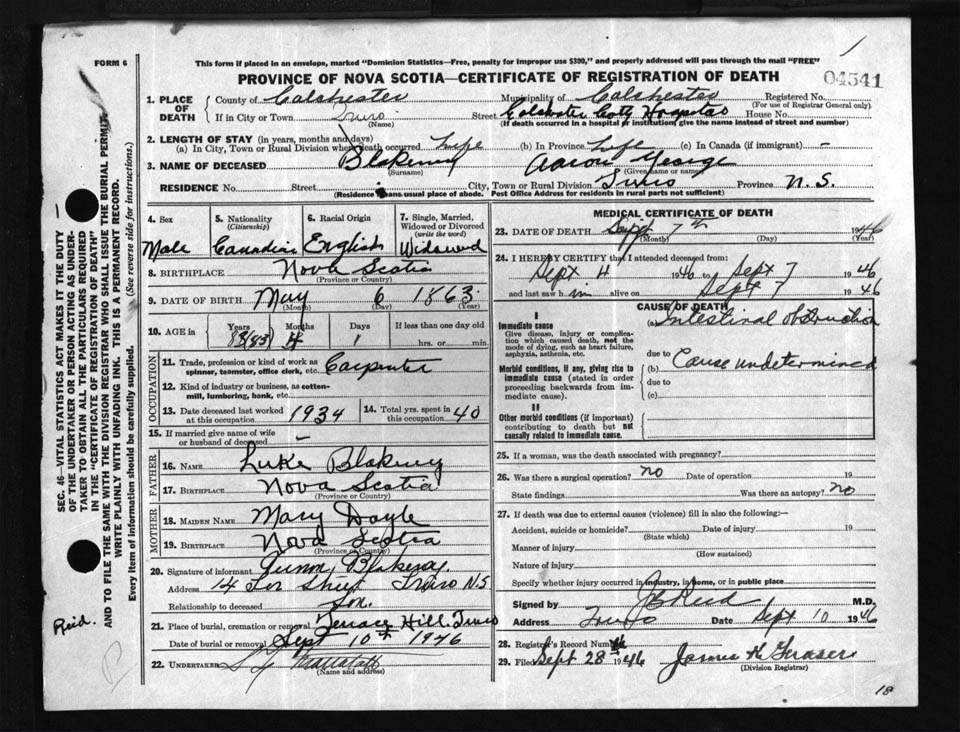 FORM 6
This form if placed in an envelope, marked "Dominion Statistics—Free, penalty for improper use $300," and properly addressed will pass through the mail "FREE"
PROVINCE OF NOVA SCOTIA—CERTIFICATE OF REGISTRATION OF DEATH
04541
1. PLACE OF DEATH
County of Colchester Municipality of Colchester Registered No.
(For use of Registrar General only)
If in City or Town Truro Street Colchester Cnty Hospital House No.
(Name) (If death occurred in a hospital or institution, give the name instead of street and number)
2. LENGTH OF STAY (in years, months and days)
(a) In City, Town or Rural Division where death occurred Life (b) In Province Life (c) In Canada (if immigrant) —
3. NAME OF DECEASED Blakeney Aaron George
(Surname) (Given name or names)
RESIDENCE No. Street City, Town or Rural Division Truro Province N.S.
(Residence means usual place of abode. Post Office Address for residents in rural parts not sufficient)
4. Sex
Male
5. Nationality
(Citizenship)
Canadian
6. Racial Origin
English
7. Single, Married, Widowed or Divorced
(write the word)
Widowed
8. BIRTHPLACE Nova Scotia
(Province or Country)
9. DATE OF BIRTH May 6 1863
(Month) (Day) (Year)
10. AGE in Years Months Days If less than one day old
83 4 1 hrs. or min.
OCCUPATION
11. Trade, profession or kind of work as spinner, teamster, office clerk, etc. Carpenter
12. Kind of industry or business, as cotton-mill, lumbering, bank, etc.
13. Date deceased last worked at this occupation 1934
14. Total yrs. spent in this occupation 40
15. If married give name of wife or husband of deceased —
FATHER
16. NAME Luke Blakeney
17. BIRTHPLACE Nova Scotia
(Province or Country)
MOTHER
18. MAIDEN NAME Mary Doyle
19. BIRTHPLACE Nova Scotia
(Province or Country)
20. Signature of informant Blakeney
Address 14 Street Truro N.S
Relationship to deceased Son.
21. Place of burial, cremation or removal Terrace Hill. Truro
Date of burial or removal Sept 10th 1946
22. UNDERTAKER
(Name and address)
MEDICAL CERTIFICATE OF DEATH
23. DATE OF DEATH Sept 7th 1946
(Month) (Day) (Year)
24. I HEREBY CERTIFY that I attended deceased from:
Sept 4 1946 to Sept 7 1946
and last saw him alive on Sept 7 1946
CAUSE OF DEATH
I
Immediate cause
Give disease, injury or complication which caused death, not the mode of dying, such as heart failure, asphyxia, asthenia, etc.
(a) Intestinal obstruction
due to
Morbid conditions, if any, giving rise to immediate cause (stated in order proceeding backwards from immediate cause).
(b) Cause undetermined
due to
(c)
II
Other morbid conditions (if important) contributing to death but not causally related to immediate cause.
25. If a woman, was the death associated with pregnancy?
26. Was there a surgical operation? no Date of operation 19
State findings Was there an autopsy? no
27. If death was due to external causes (violence) fill in also the following:—
Accident, suicide or homicide? Date of injury 19
(State which)
Manner of injury
(How sustained)
Nature of injury
Specify whether injury occurred in industry, in home, or in public place
Signed by Reid M.D.
Address Truro Date Sept 10 1946
28. Registrar's Record Number
29. Filed Sept 28 1946 James K Fraser
(Division Registrar)
18
SEC. 46—VITAL STATISTICS ACT MAKES IT THE DUTY OF THE UNDERTAKER OR PERSON ACTING AS UNDERTAKER TO OBTAIN ALL THE PARTICULARS REQUIRED IN THE "CERTIFICATE OF REGISTRATION OF DEATH" AND TO FILE THE SAME WITH THE DIVISION REGISTRAR WHO SHALL ISSUE THE BURIAL PERMIT.
WRITE PLAINLY WITH UNFADING INK. THIS IS A PERMANENT RECORD.
Every item of information should be carefully supplied. (See reverse side for instructions.)